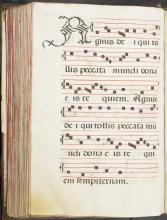 Agnus de i qui to
llis peccata mundi dona
e is re quiem. Agnus
de i qui tollis peccata mu
ndi dona e is re qui
em sempiternam.